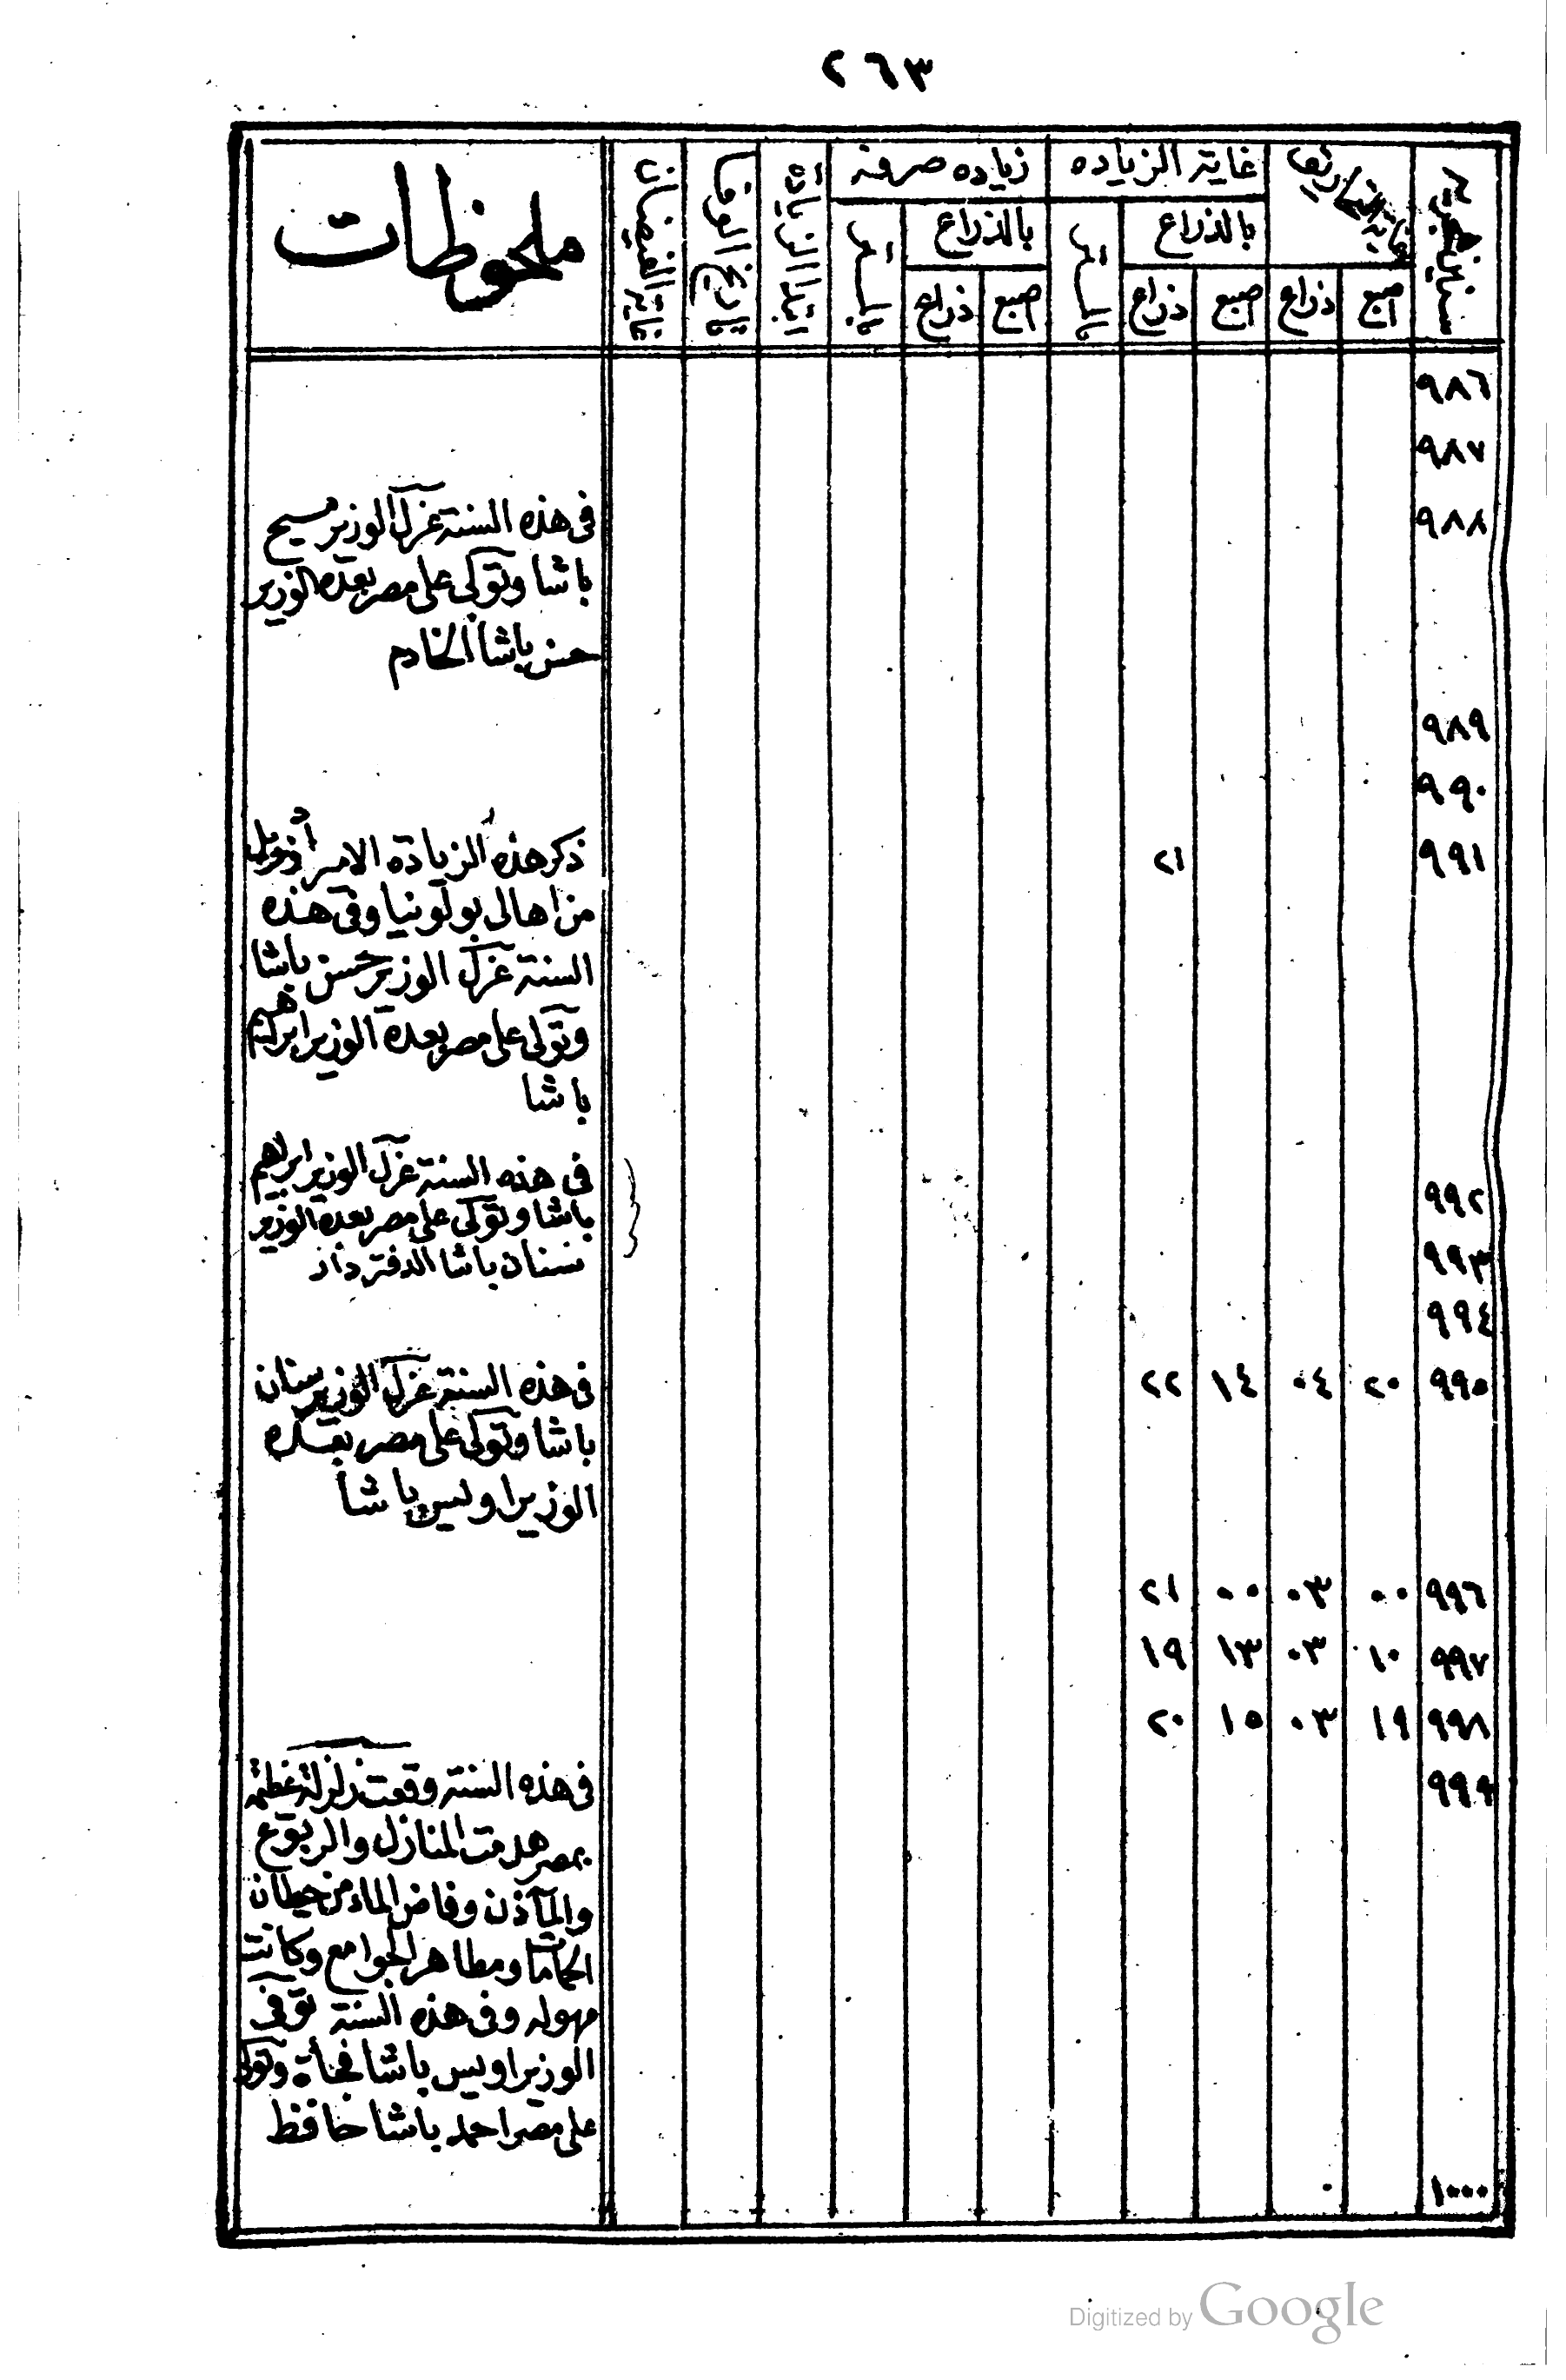 ٢٦٣
سنين هجرية
غاية التحاريق
غاية الزياده
زياده صرفه
ابتدا الزيادة
تاريخ الوفا
غاية الفيضان
ملحوظات
بالذراع
بالمتر
بالذراع
بالمتر
اصبع ذراع اصبع ذراع اصبع ذراع
٩٨٦
٩٨٧
٩٨٨
فى هذه السنة عزل الوزير مسيح
باشا وتولى على مصر بعده الوزير
حسن باشا الخادم
٩٨٩
٩٩٠
٩٩١ ٢١
ذكر هذه الزيادة الامير
من اهالى بولونيا وفى هذه
السنة عزل الوزير حسن باشا
وتولى على مصر بعده الوزير ابراهيم
باشا
٩٩٢
فى هذه السنة عزل الوزير ابراهيم
باشا وتولى على مصر بعده الوزير
سنان باشا الدفتردار
٩٩٣
٩٩٤
٩٩٥ ٢٠ ٠٤ ١٤ ٢٢
فى هذه السنة عزل الوزير سنان
باشا وتولى على مصر بعده
الوزير اويس باشا
٩٩٦ ٠٠ ٠٣ ٠٠ ٢١
٩٩٧ ١٠ ٠٣ ١٣ ١٩
٩٩٨ ١٩ ٠٣ ١٥ ٢٠
٩٩٩
فى هذه السنة وقعت زلزلة عظيمة
بمصر هدمت المنازل والربوع
والمآذن وفاض الماء من حيطان
الحمامات ومطاهر الجوامع وكانت
مهوله وفى هذه السنة توفى
الوزير اويس باشا فجأة وتولى
على مصر احمد باشا حافظ
١٠٠٠
Digitized by Google